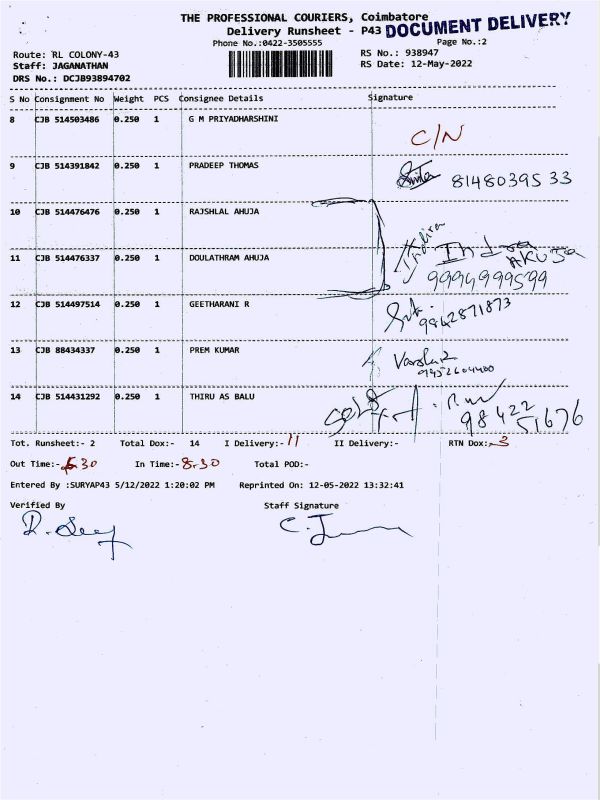 THE PROFESSIONAL COURIERS, Coimbatore
Delivery Runsheet - P43 DOCUMENT DELIVERY
Phone No.:0422-3505555 Page No.:2
Route: RL COLONY-43 RS No.: 938947
Staff: JAGANATHAN RS Date: 12-May-2022
DRS No.: DCJB93894702
S No Consignment No Weight PCS Consignee Details Signature
8 CJB 514503486 0.250 1 G M PRIYADHARSHINI
C/N
9 CJB 514391842 0.250 1 PRADEEP THOMAS
8148039533
10 CJB 514476476 0.250 1 RAJSHLAL AHUJA
Indira
11 CJB 514476337 0.250 1 DOULATHRAM AHUJA
9994999599
12 CJB 514497514 0.250 1 GEETHARANI R
9842871873
13 CJB 88434337 0.250 1 PREM KUMAR
14 CJB 514431292 0.250 1 THIRU AS BALU
98422
51676
Tot. Runsheet:- 2 Total Dox:- 14 I Delivery:- 11 II Delivery:- RTN Dox:- 3
Out Time:- 30 In Time:- 8.30 Total POD:-
Entered By :SURYAP43 5/12/2022 1:20:02 PM Reprinted On: 12-05-2022 13:32:41
Verified By Staff Signature